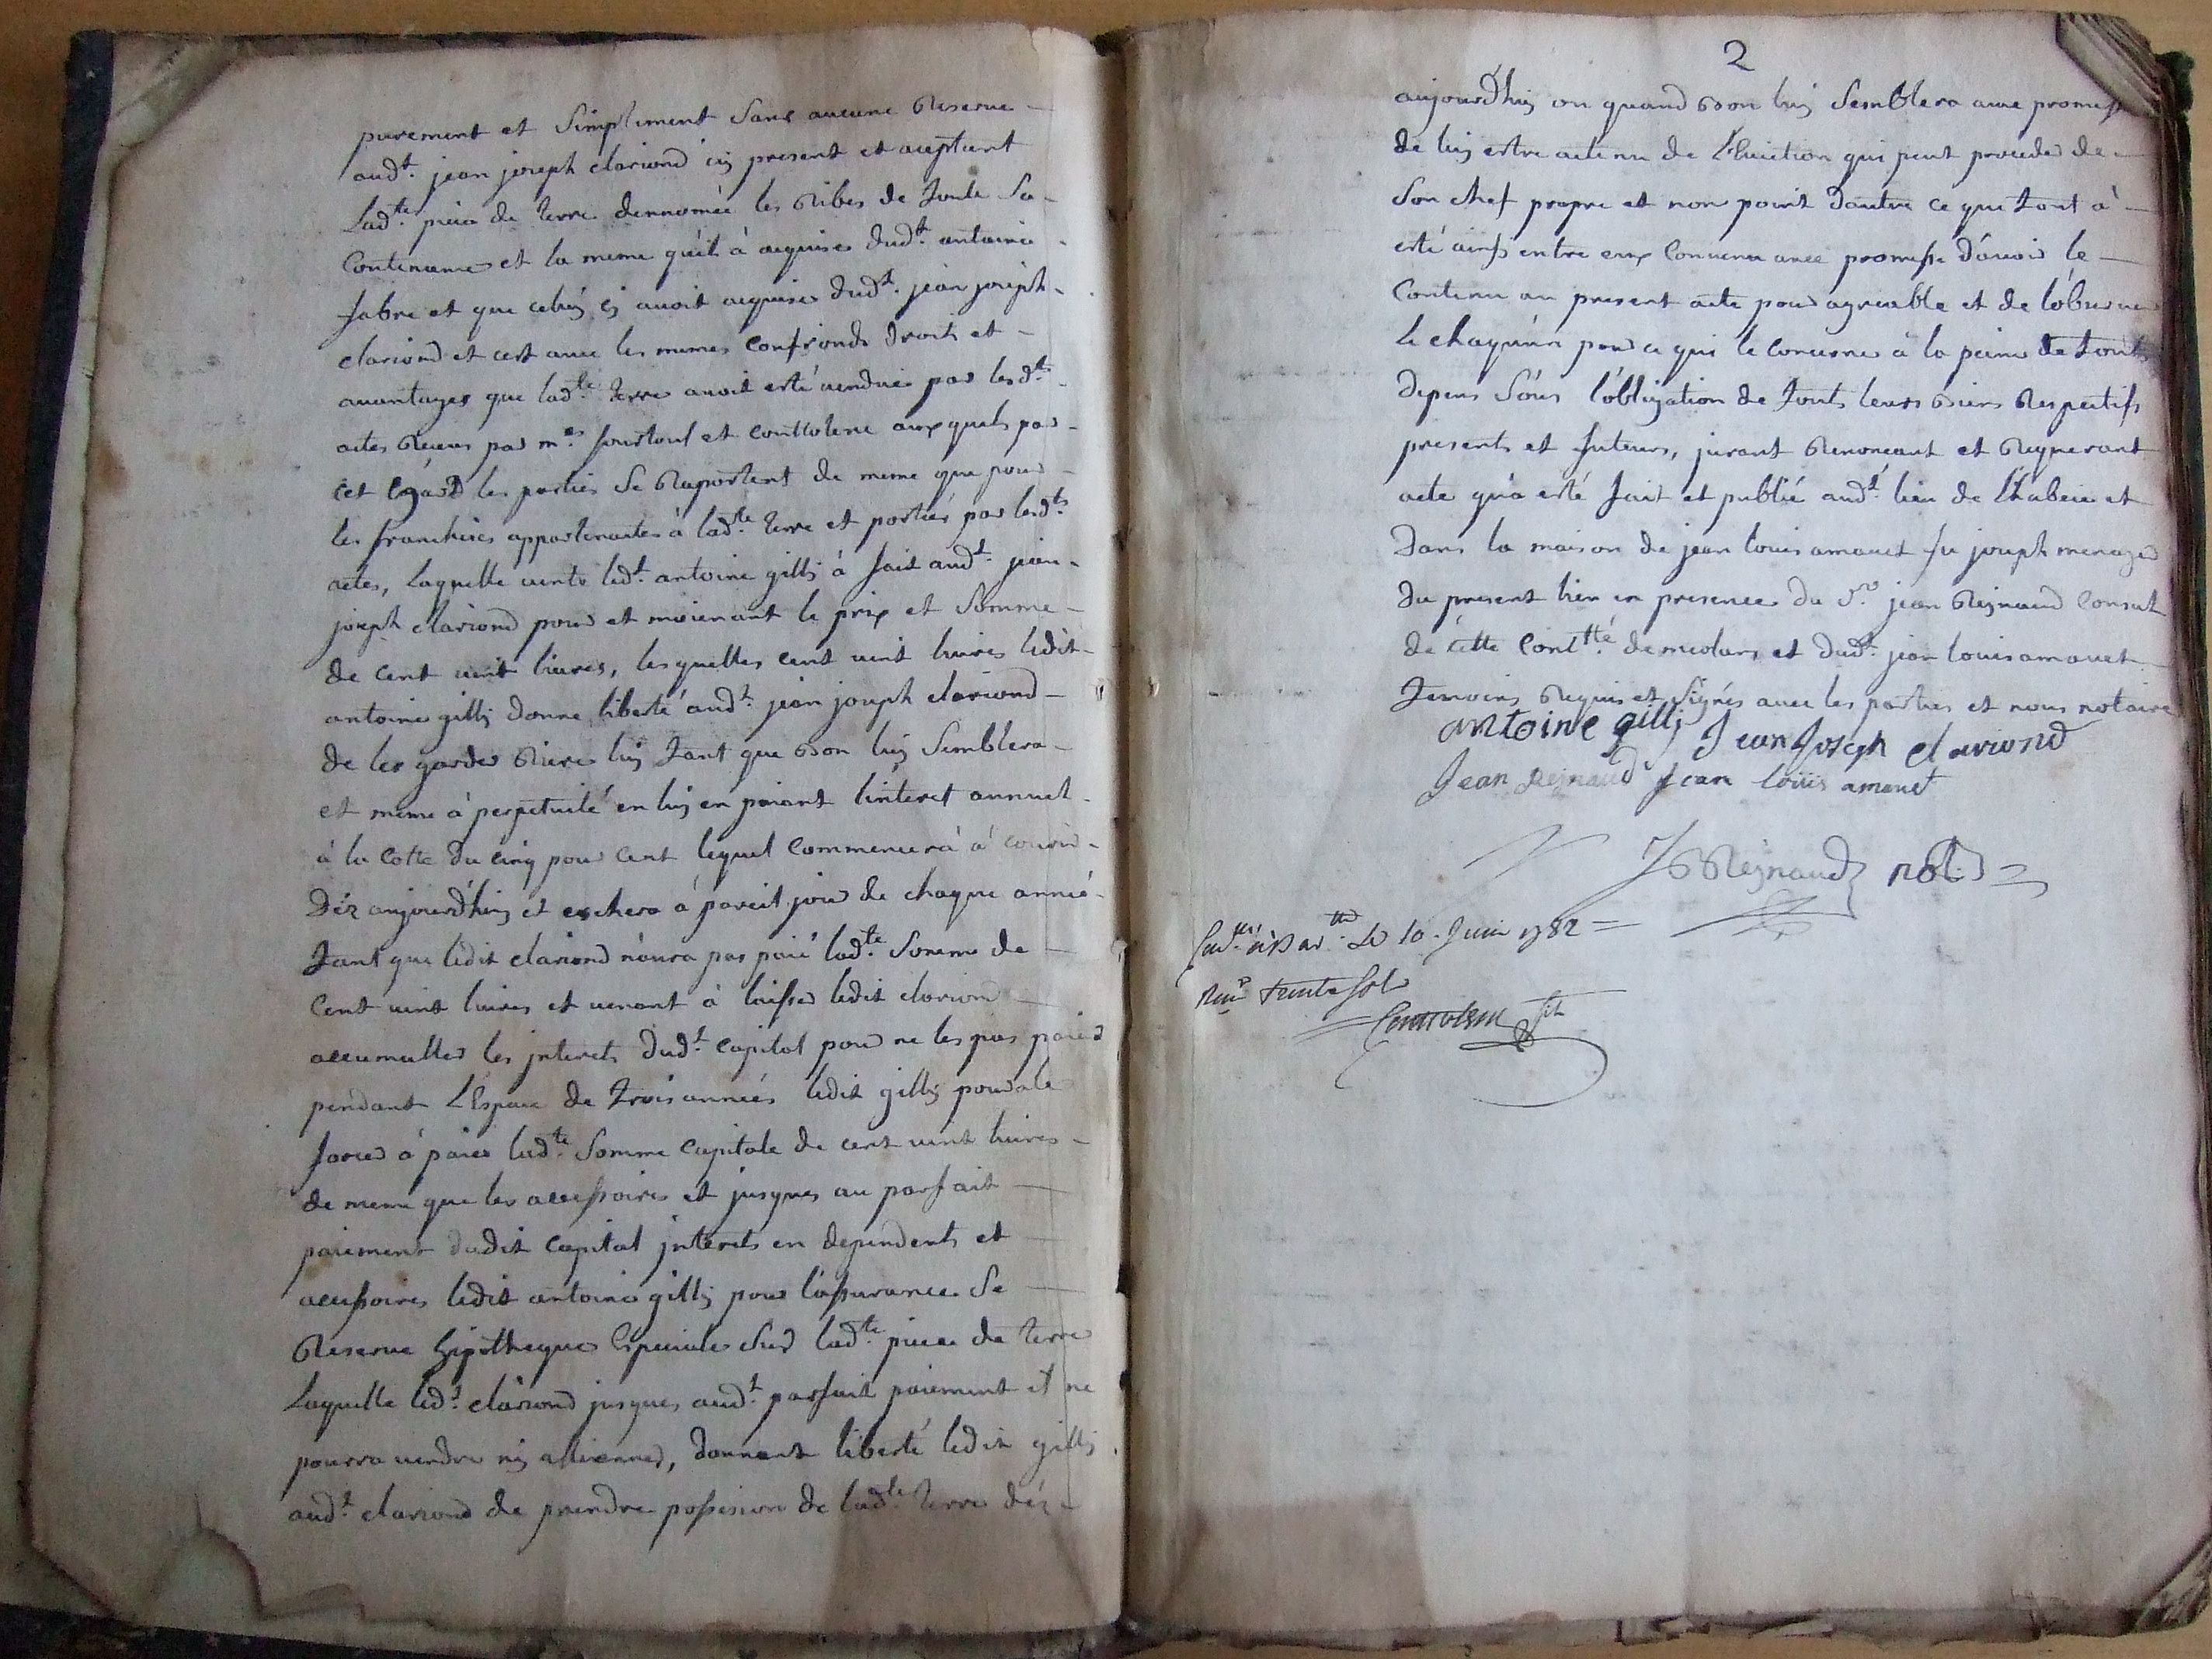 purement et simplement sans aucune reserve
aud.t jean joseph clariond icy present et aceptant
lad.te piece de terre dennomée les ribes de toute sa
contenance et la meme qu'il à aquise dud.t antoine
fabre et que celuy cy avoit aquise dud.t jean joseph
clariond et cest avec les memes confronds droits et
avantages que lad.te terre avoit esté vendue par lesd.ts
actes recus par m.es et couttolenc auxquels par
cet égard les parties se raportent de meme que pour
les franchises appartenantes à lad.te terre et portées par lesd.ts
actes, laquelle vente led.t antoine gilly à fait aud.t jean
joseph clariond pour et moienant le prix et somme
de cent vint livres, lesquelles cent vint livres ledit
antoine gilly donne liberté aud.t jean joseph clariond
de les garder riere luy tant que bon luy semblera
et meme à perpetuité en luy en paiant l'interet annuel
à la cotte du cinq pour cent lequel commencera à courir
déz aujourd'huy et eschera à pareil jour de chaque année
tant que ledit clariond n'aura pas paié lad.te somme de
cent vint livres et venant à laisser ledit clariond
accumuller les interets dud.t capital pour ne les pas paier
pendant l'espace de trois années ledit gilly pourra le
forcer à paier lad.te somme capitale de cent vint livres
de meme que les accessoires et jusques au parfait
paiement dudit capital interets en dependents et
accessoires ledit antoine gilly pour l'assurance se
reserve hipotheque speciale sur lad.te piece de terre
laquelle led.t clariond jusques aud.t parfait paiement il ne
pourra vendre ny alliener, donnant liberté ledit gilly
aud.t clariond de prendre possesion de lad.te terre déz
2
aujourd'huy ou quand bon luy semblera avec promesse
de luy estre atenu de l'eviction qui peut proceder de
son chef propre et non point d'autre ce que tout à
esté ainsy entre eux convenu avec promesse d'avoir le
contenu au present acte pour agreable et de l'observer
le chaqu'un pour ce qui le concerne à la peine de touts
depens sous l'obligation de touts leurs biens respectifs
presents et futeurs, jurant renonceant et requerant
acte qu'a esté fait et publié aud.t lieu de l'habeie et
dans la maison de jean louis amavet fu joseph menager
du present lieu en presence du S.r jean Reynaud consul
de cette com.tté de meolans et dud.t jean louis amavet
temoins requis et signés avec les parties et nous notaire
antoine gilly Jean Joseph clariond
Jean Reynaud Jean louis amavet
Reynaud not.re
le 10 Juin 1782
trente sols